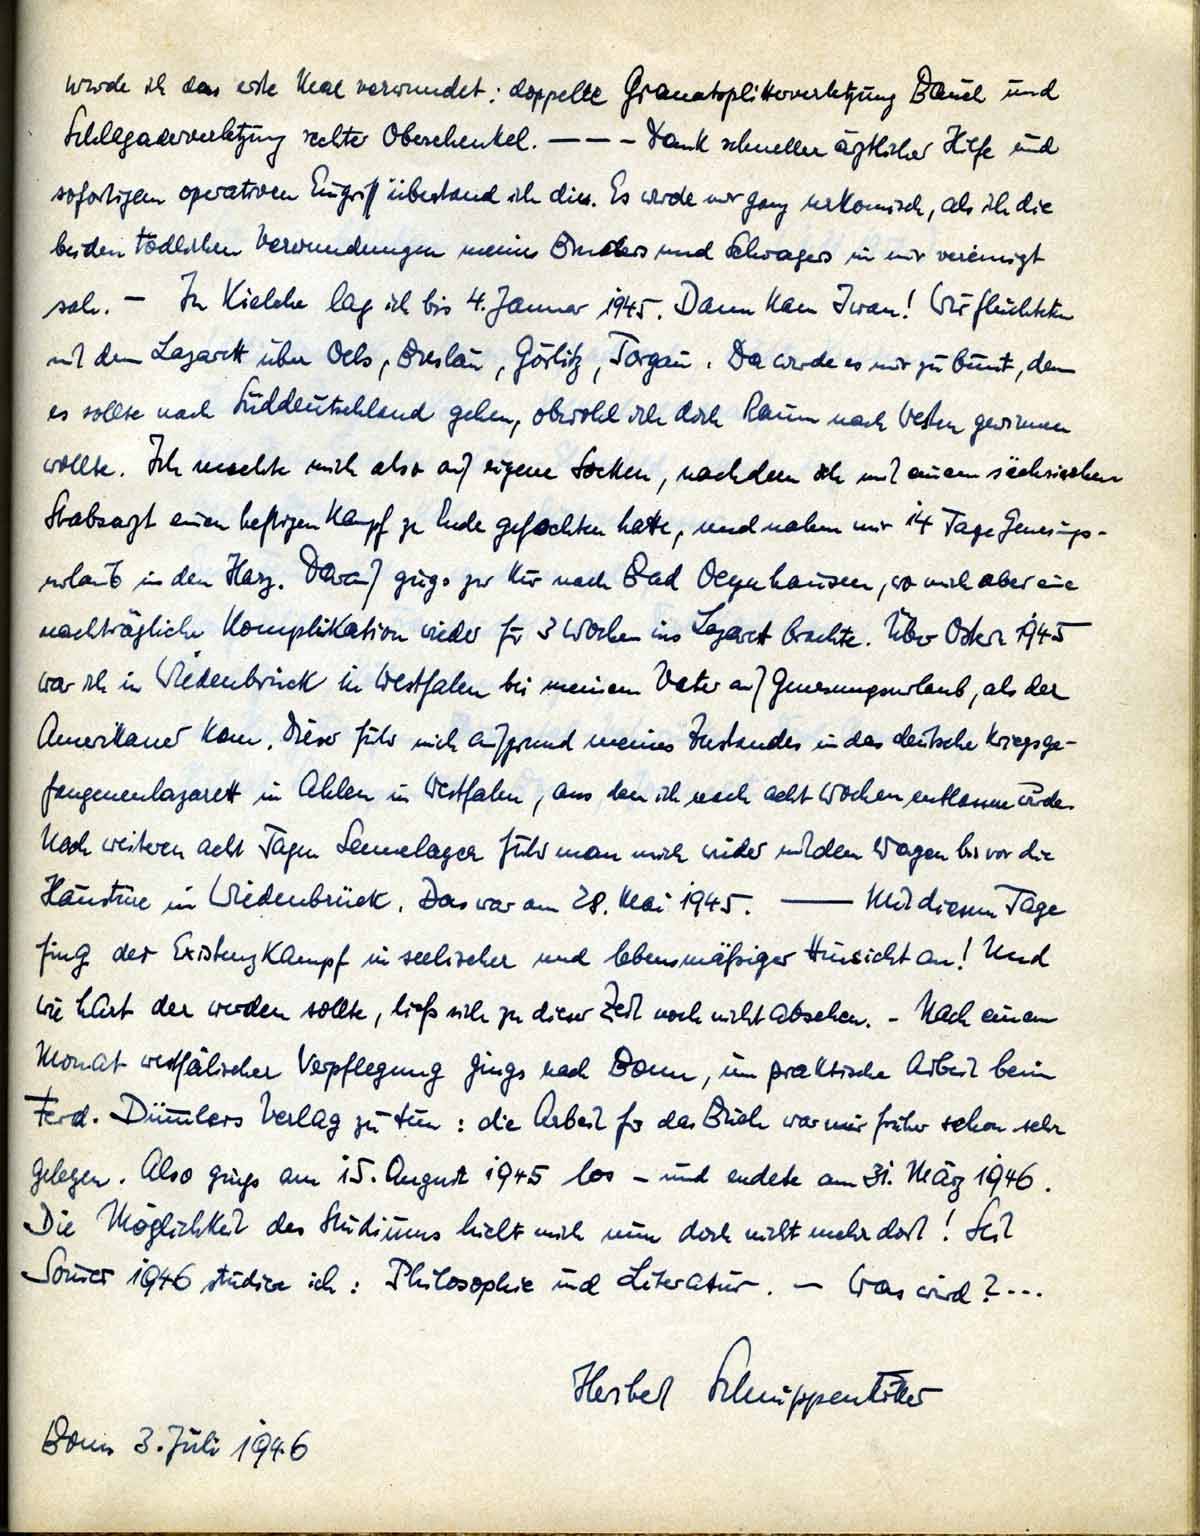 wurde ich das erste Mal verwundet: doppelte Granatsplitterverletzung Bauch und
Schlagaderverletzung rechter Oberschenkel. — — – Dank schneller ärztlicher Hilfe und
sofortigem operativen Eingriff überstand ich dies. Es wurde mir ganz urkomisch, als ich die
beiden tödlichen Verwundungen meines Bruders und Schwagers in mir vereinigt
sah. — In Kielche lag ich bis 4. Januar 1945. Dann kam Iwan! Wir flüchteten
mit dem Lazarett über Oels, Breslau, Görlitz, Torgau. Da wurde es mir zu bunt, denn
es sollte nach Süddeutschland gehen, obwohl ich doch Raum nach Westen gewinnen
wollte. Ich machte mich also auf eigene Socken, nachdem ich mit einem sächsischen
Stabsarzt einen heftigen Kampf zu Ende gefochten hatte, und nahm mir 14 Tage Genesungs-
urlaub in den Harz. Darauf gings zur Kur nach Bad Oeynhausen, wo mich aber eine
nachträgliche Komplikation wieder für 3 Wochen ins Lazarett brachte. Über Ostern 1945
war ich in Wiedenbrück in Westfalen bei meinem Vater auf Genesungsurlaub, als der
Amerikaner kam. Dieser fuhr mich aufgrund meines Zustandes in das deutsche Kriegsge-
fangenenlazarett in Ahlen in Westfalen, aus dem ich nach acht Wochen entlassen wurde.
Nach weiteren acht Tagen Sennelager fuhr man mich wieder mit dem Wagen bis vor die
Haustüre in Wiedenbrück. Das war am 28. Mai 1945. — Mit diesem Tage
fing der Existenzkampf in seelischer und lebensmäßiger Hinsicht an! Und
wie hart der werden sollte, ließ sich zu dieser Zeit noch nicht absehen. – Nach einem
Monat westfälischer Verpflegung gings nach Bonn, um praktische Arbeit beim
Ferd. Dümmlers Verlag zu tun: die Arbeit für das Buch war mir früher schon sehr
gelegen. Also gings am 15. August 1945 los – und endete am 31. März 1946.
Die Möglichkeit des Studiums hielt mich nun doch nicht mehr dort! Seit
Sommer 1946 studiere ich: Philosophie und Literatur. — Was wird?...
Herbert Schnuppenkötter
Bonn 3. Juli 1946